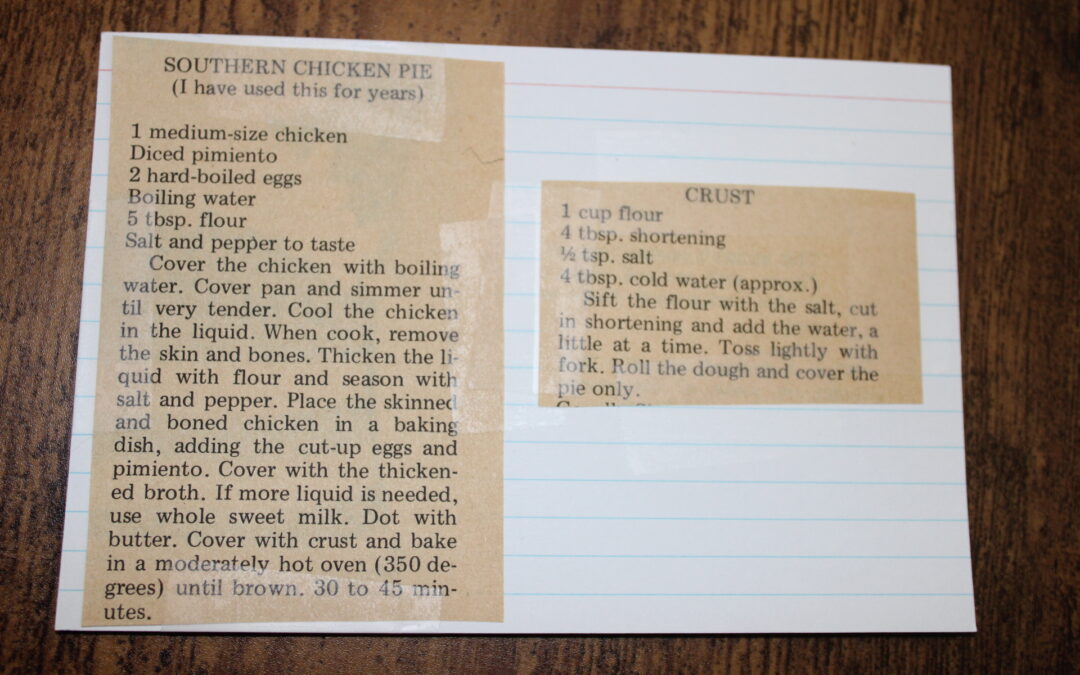 SOUTHERN CHICKEN PIE
(I have used this for years)
1 medium-size chicken
Diced pimiento
2 hard-boiled eggs
Boiling water
5 tbsp. flour
Salt and pepper to taste
Cover the chicken with boiling
water. Cover pan and simmer un-
til very tender. Cool the chicken
in the liquid. When cook, remove
the skin and bones. Thicken the li-
quid with flour and season with
salt and pepper. Place the skinned
and boned chicken in a baking
dish, adding the cut-up eggs and
pimiento. Cover with the thicken-
ed broth. If more liquid is needed,
use whole sweet milk. Dot with
butter. Cover with crust and bake
in a moderately hot oven (350 de-
grees) until brown. 30 to 45 min-
utes.
CRUST
1 cup flour
4 tbsp. shortening
½ tsp. salt
4 tbsp. cold water (approx.)
Sift the flour with the salt, cut
in shortening and add the water, a
little at a time. Toss lightly with
fork. Roll the dough and cover the
pie only.